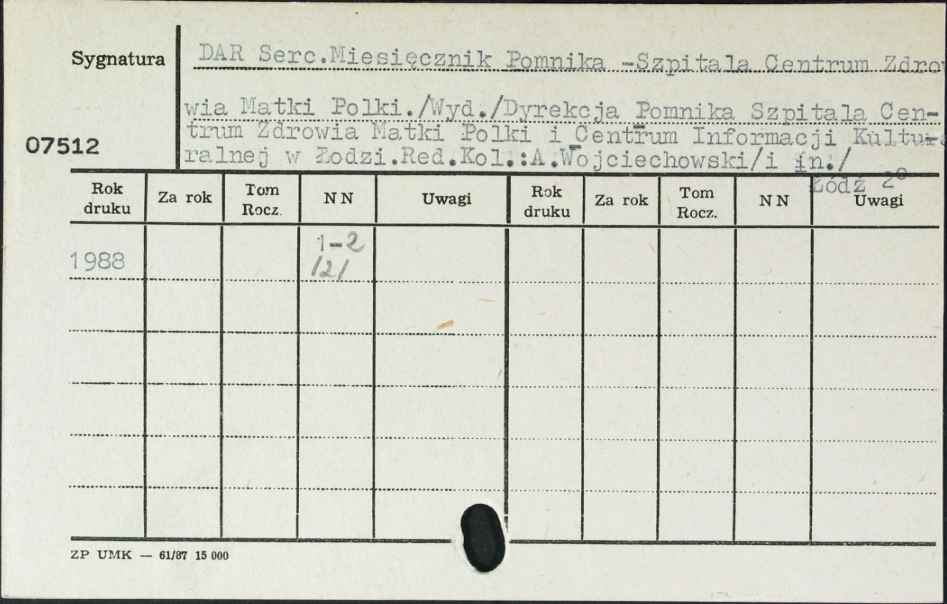 Sygnatura
DAR Serc.Miesięcznik Pomnika -Szpitala Centrum Zdro
wia Matki Polki./Wyd./Dyrekcja Pomnika Szpitala Cen-
trum Zdrowia Matki Polki i Centrum Informacji Kultu
07512
ralnej w Łodzi.Red.Kol.:A.Wojciechowski/i in./
Łódź 2°
Rok druku Za rok Tom Rocz. N N Uwagi Rok druku Za rok Tom Rocz. N N Uwagi
1988 1-2
/2/
ZP UMK — 61/87 15 000